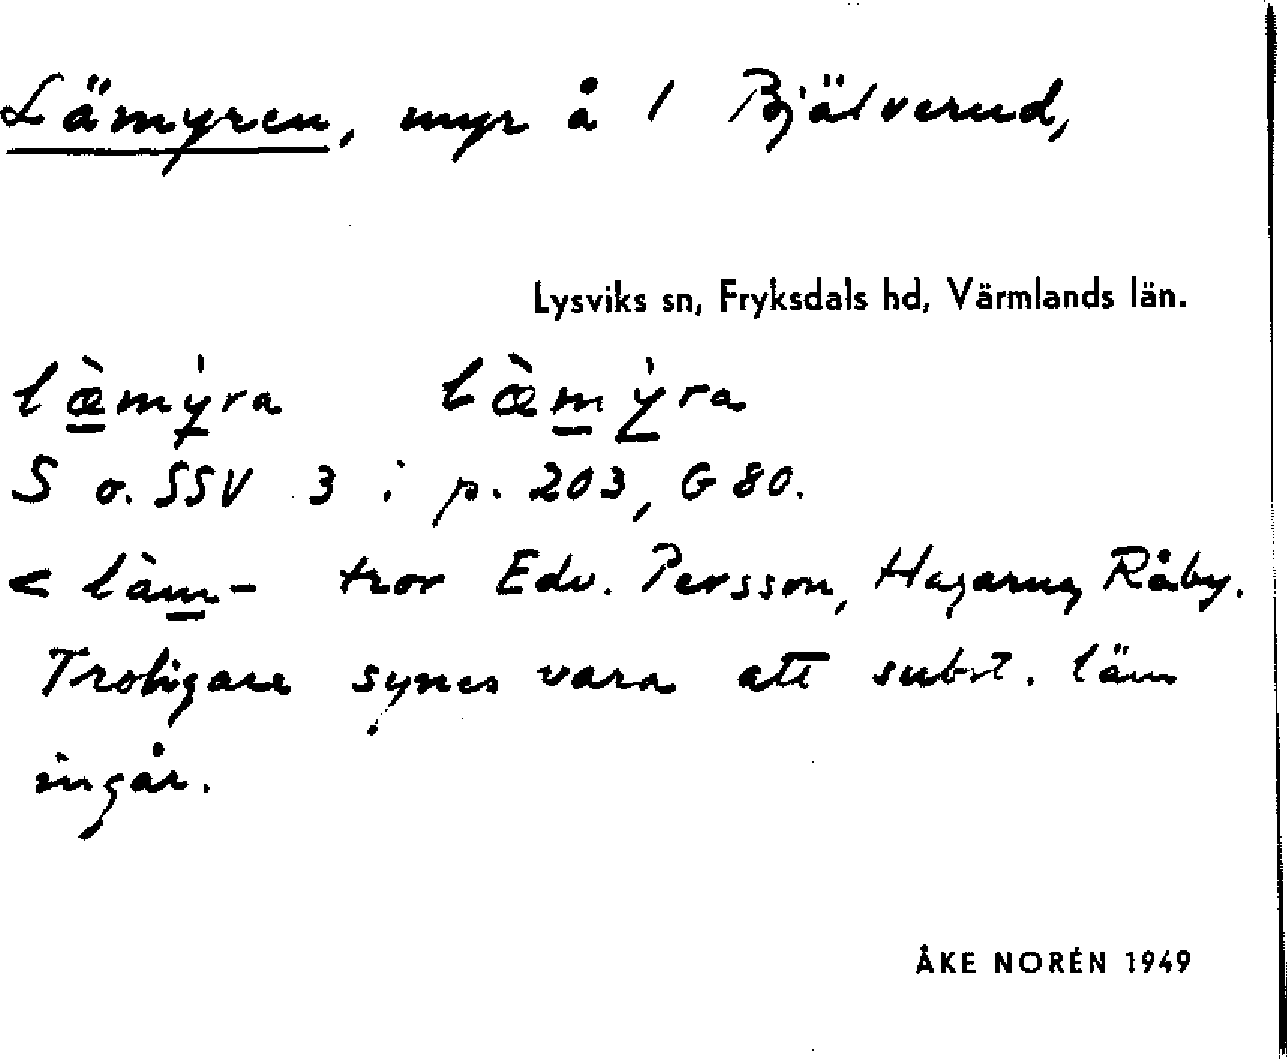 Lämyren, myr å 1 Bjälverud,
Lysviks sn, Fryksdals hd, Värmlands län.
læ̀mýra læ̀mýra
S o. SSV 3 i p. 203, G 80.
< làm- tror Edv. Persson, Hagarna, Råby.
Troligare synes vara att subst. läm
ingår.
ÅKE NORÉN 1949